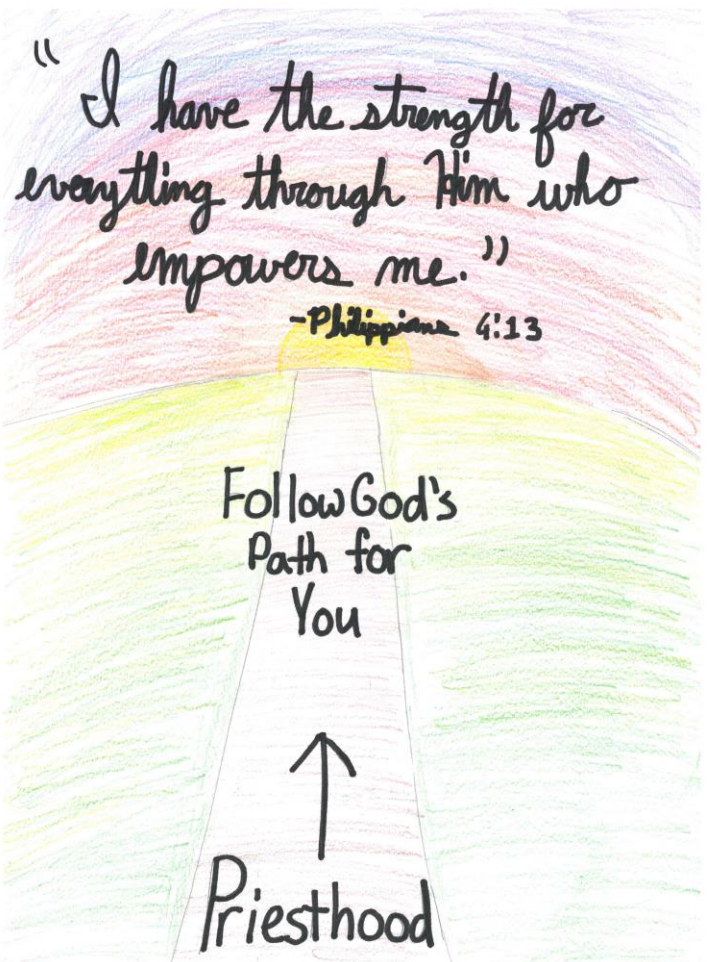 "I have the strength for
everything through Him who
empowers me."
-Philippians 4:13
Follow God's
Path for
You
Priesthood